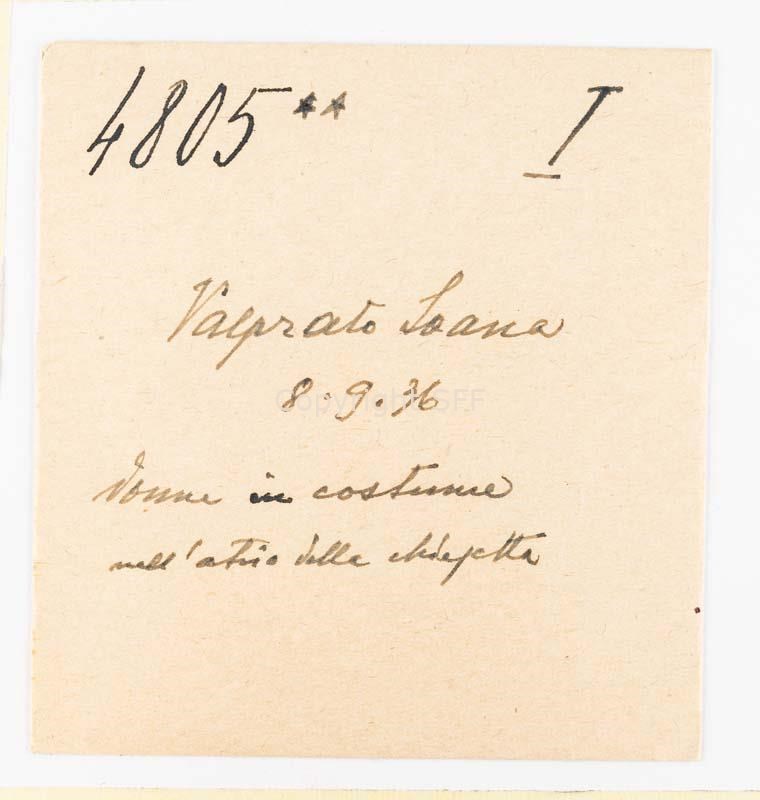 4805** I
Valprato Soana
8.9.36
donne in costume
nell'atrio della chiesetta
Copyright SFF